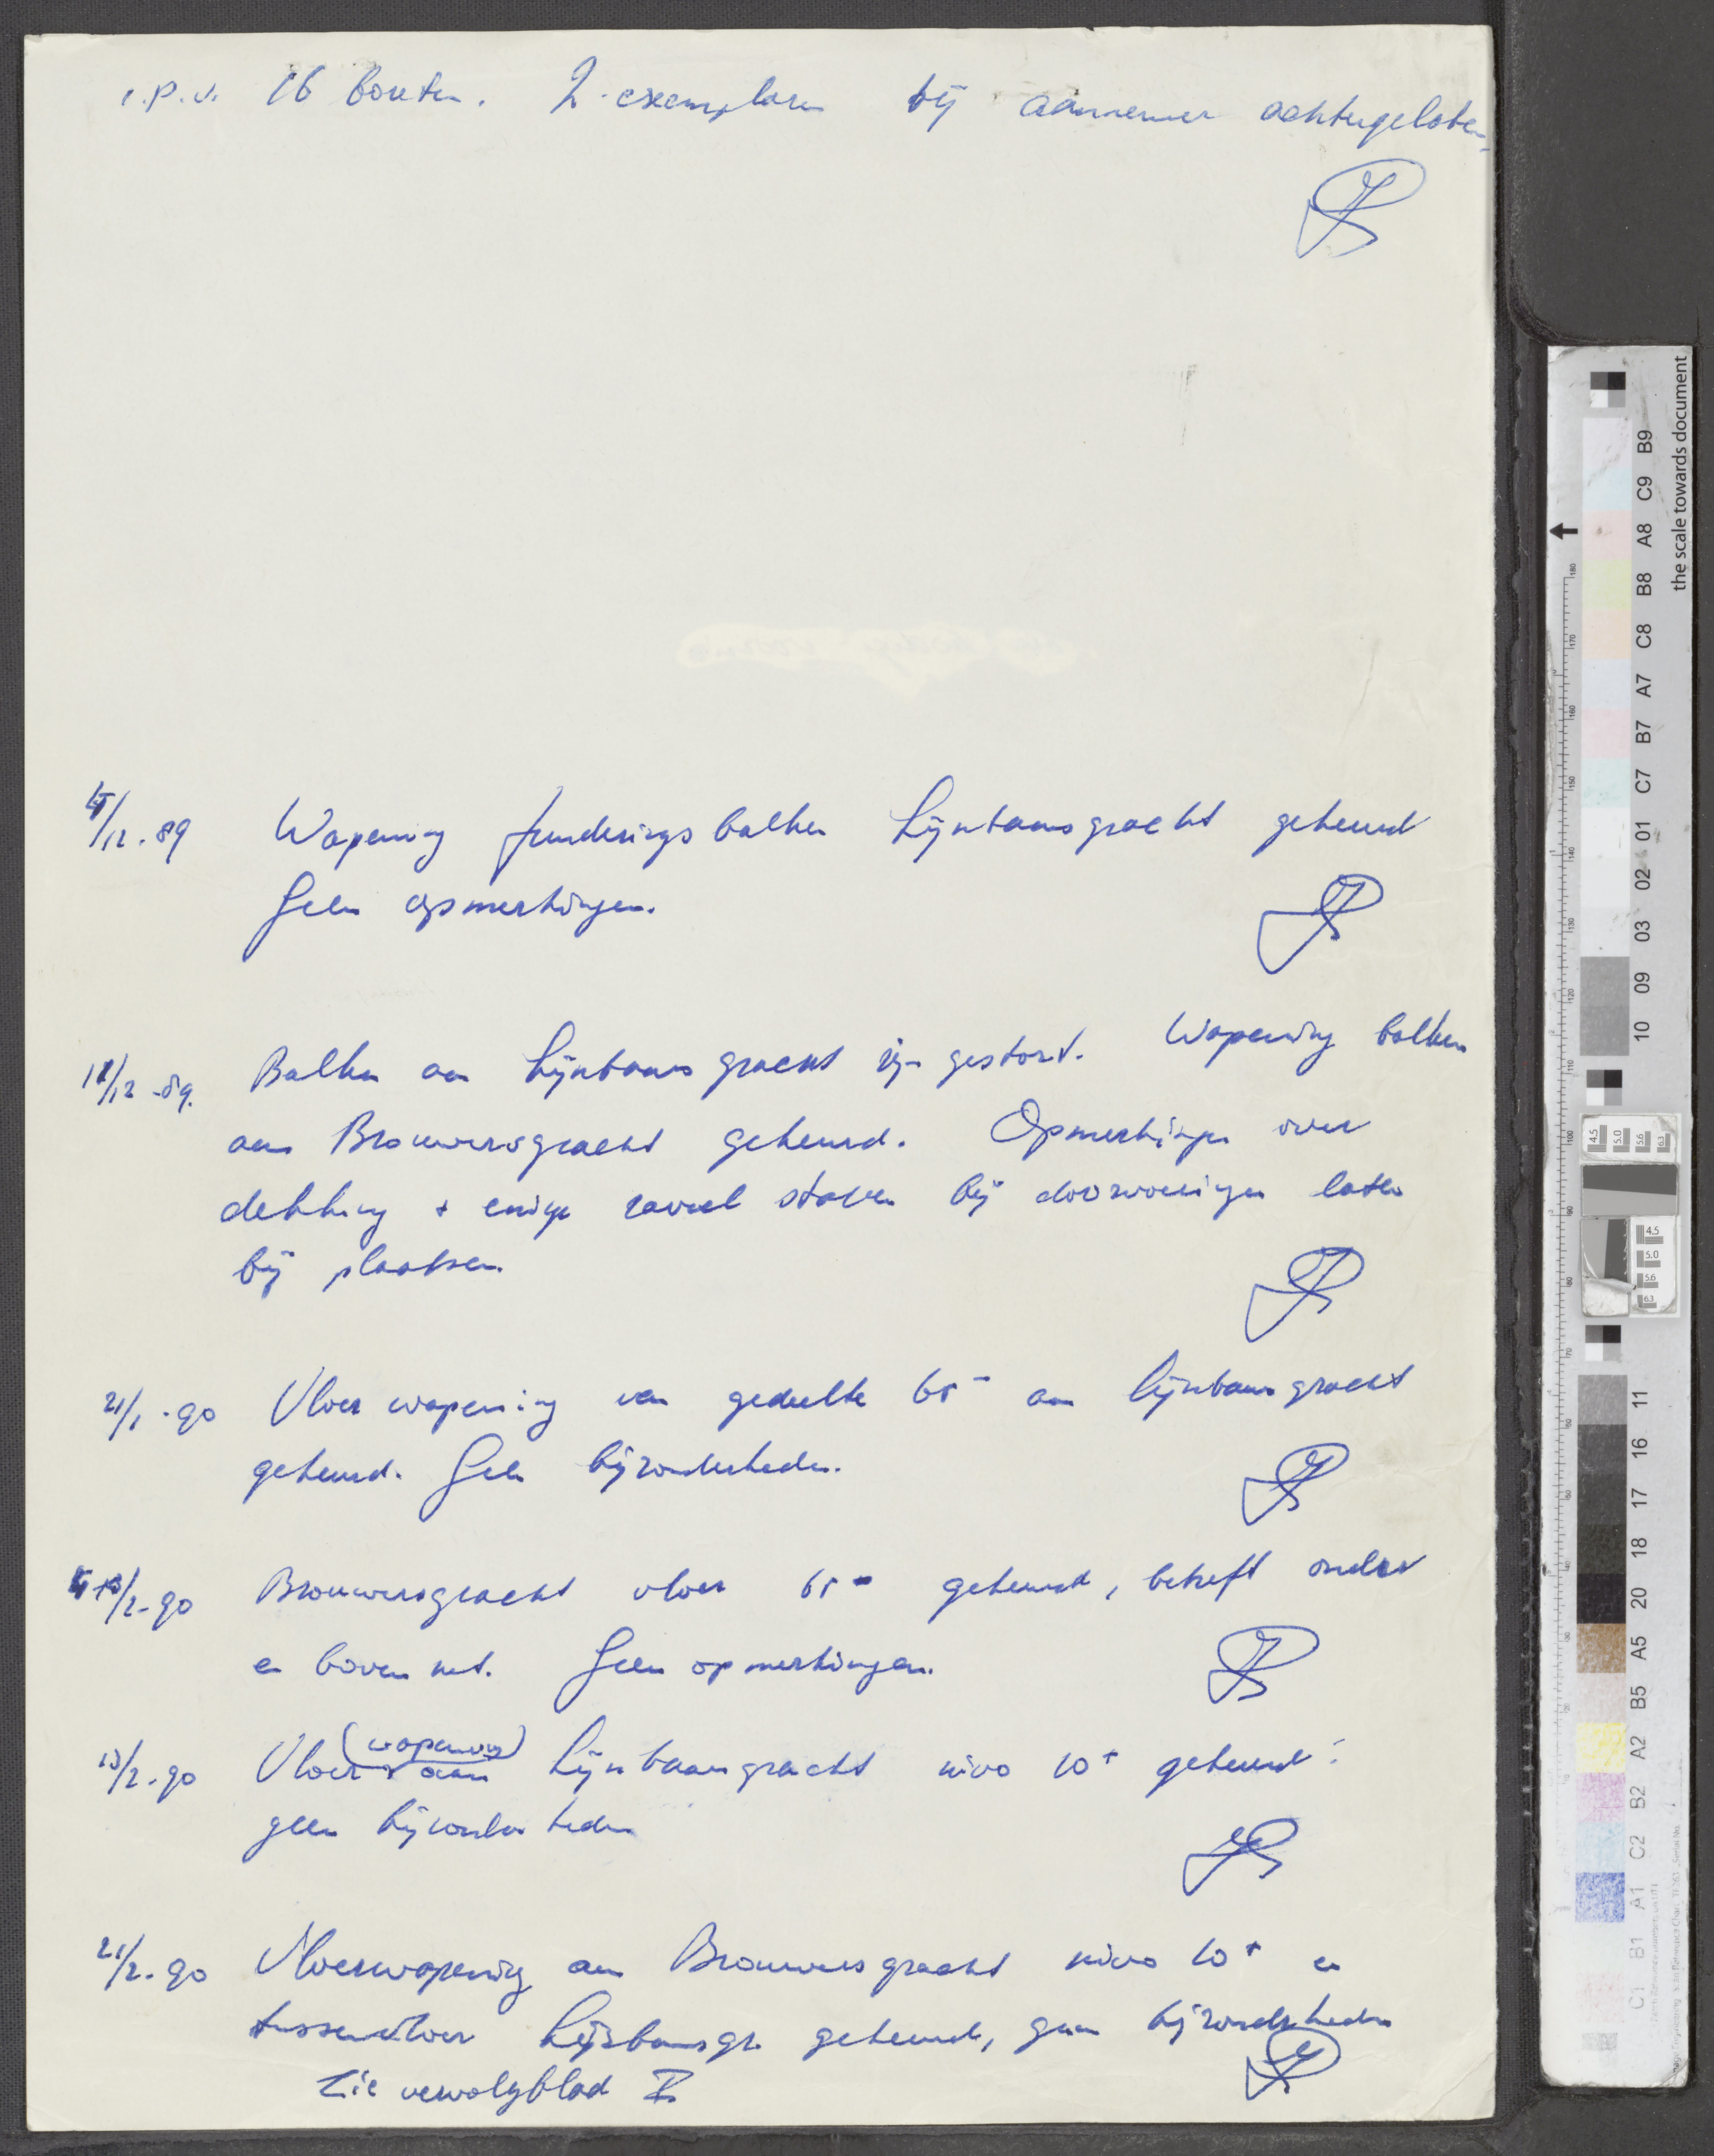 i.p.v. 16 bouten. 2 exemplaren bij aannemer achtergelaten
/12.89 Wapening funderingsbalken Lijnbaansgracht gekeurd
Geen opmerkingen.
12/12-89. Balken aan Lijnbaansgracht zijn gestort. Wapening balken
aan Brouwersgracht gekeurd. Opmerkingen over
dekking + enige raveel staven bij doorvoeringen laten
bij plaatsen.
21/1-90 Vloer wapening van gedeelte 65- aan Lijnbaansgracht
gekeurd. Geen bijzonderheden.
/2-90 Brouwersgracht vloer 65- gekeurd, betreft onder
en boven net. Geen opmerkingen.
(wapening)
13/2-90 Vloer aan Lijnbaansgracht nivo 10+ gekeurd:
geen bijzonderheden
21/2-90 Vloerwapening aan Brouwersgracht nivo 10+ en
tussenvloer Lijnbaansgr. gekeurd, geen bijzonderheden
Zie vervolgblad II
the scale towards document
B9
C9
A8
B8
C8
A7
B7
C7
01
02
03
09
10
11
16
17
18
20
A5
B5
A2
B2
C2
A1
B1
C1
180
170
160
150
140
130
120
110
100
90
80
70
4.5
5.0
5.6
6.3
4.5
5.0
5.6
6.3